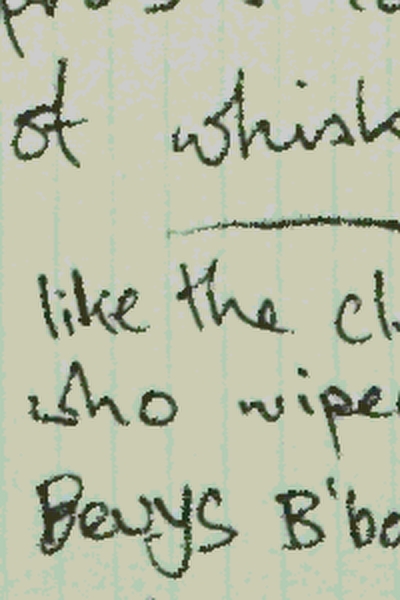 of whisk
like the cl
who wipe
Beuys B'bo